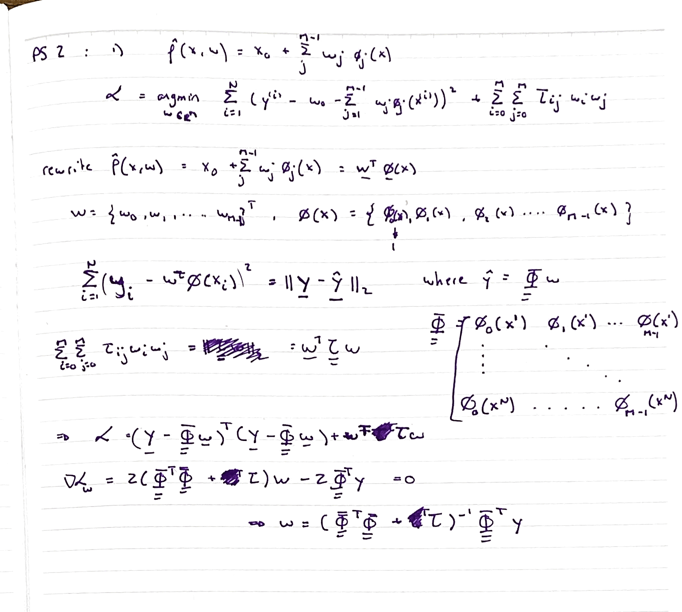 PS 2 : 1) p̂(x,w) = x₀ + Σ_j^{M-1} w_j φ_j(x)
L = argmin_{w∈ℝᴹ} Σ_{i=1}^{N} (y⁽ⁱ⁾ - w₀ - Σ_{j=1}^{M-1} w_j φ_j(x⁽ⁱ⁾))² + Σ_{i=0}^{M} Σ_{j=0}^{M} τ_{ij} w_i w_j
rewrite p̂(x,w) = x₀ + Σ_j^{M-1} w_j φ_j(x) = wᵀ φ(x)
w = {w₀, w₁, .... w_{M-1}}ᵀ , φ(x) = { φ₀(x), φ₁(x), φ₂(x) .... φ_{M-1}(x) }
↓
1
Σ_{i=1}^{N} (y_i - wᵀφ(x_i))² = ||Y - Ŷ||₂ where ŷ = Φ w
Φ = [ φ₀(x¹) φ₁(x¹) ... φ_{M-1}(x¹)
Σ_{i=0}^{M} Σ_{j=0}^{M} τ_{ij} w_i w_j = = wᵀ τ w
φ₀(xᴺ) ..... φ_{M-1}(xᴺ)
⇒ L = (Y - Φ w)ᵀ (Y - Φ w) + wᵀ τ w
∇L_w = 2(ΦᵀΦ + τ) w - 2Φᵀy = 0
⇒ w = (ΦᵀΦ + τ)⁻¹ Φᵀ y